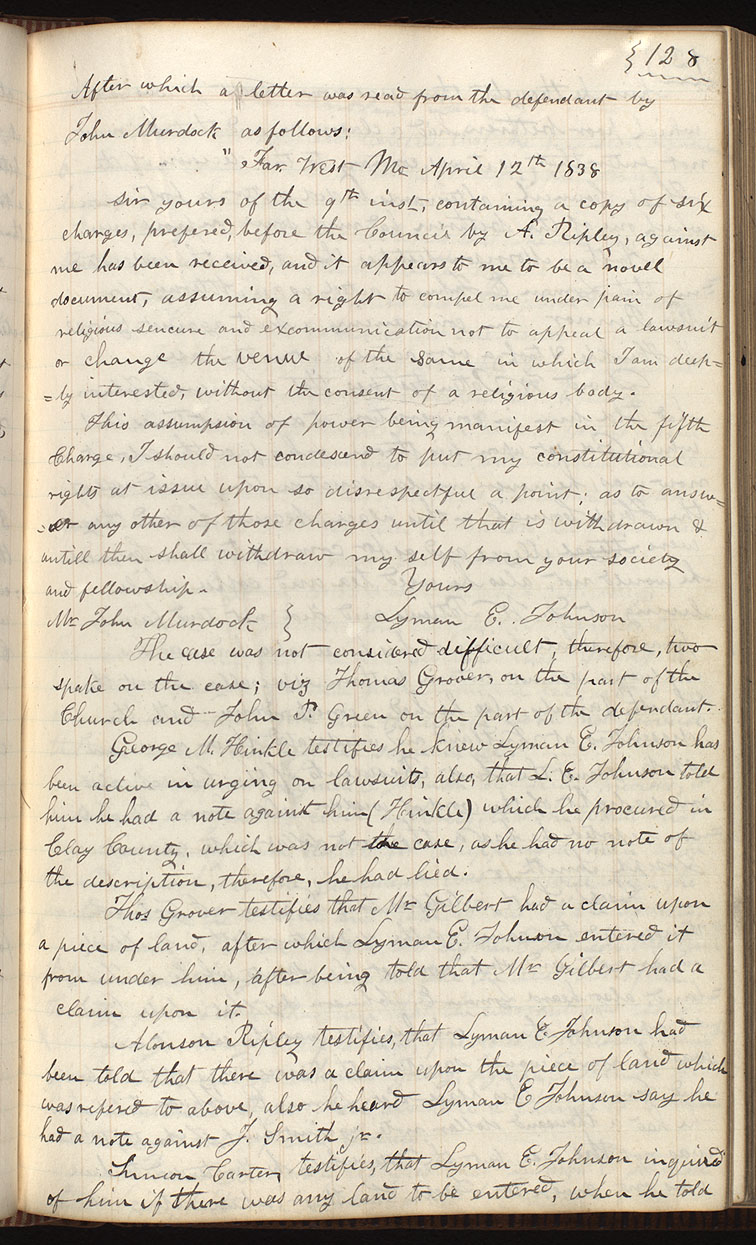 } 128
After which a letter was read from the defendant by
John Murdock as follows:
" Far West Mo April 12th 1838
Sir yours of the 9th inst, containing a copy of six
charges, prefered, before the Council by A. Ripley, against
me has been received, and it appears to me to be a novel
document, assuming a right to compel me under pain of
religious sencure and excommunication not to appeal a lawsuit
or change the venue of the same in which I am deep=
=ly interested, without the consent of a religious body.
This assumpsion of power being manifest in the fifth
Charge, I should not condescend to put my constitutional
rights at issue upon so disrespectful a point; as to answ=
=er any other of those charges until that is withdrawn &
untill then shall withdraw my self from your society
and fellowship. Yours
Mr John Murdock } Lyman E. Johnson
The case was not considered difficult, therefore, two
spake on the case; viz Thomas Grover, on the part of the
Church and John P. Green on the part of the defendant.
George M. Hinkle testifies he knew Lyman E. Johnson has
been active in urging on lawsuits, also, that L. E. Johnson told
him he had a note against him (Hinkle) which he procured in
Clay County, which was not the case, as he had no note of
the description, therefore, he had lied.
Thos Grover testifies that Mr Gilbert had a claim upon
a piece of land, after which Lyman E. Johnson entered it
from under him, after being told that Mr Gilbert had a
claim upon it.
Alonson Ripley testifies, that Lyman E. Johnson had
been told that there was a claim upon the piece of land which
was refered to above, also he heard Lyman E Johnson say he
had a note against J. Smith jr.
Simeon Carter, testifies, that Lyman E. Johnson inquired
of him if there was any land to be entered, when he told